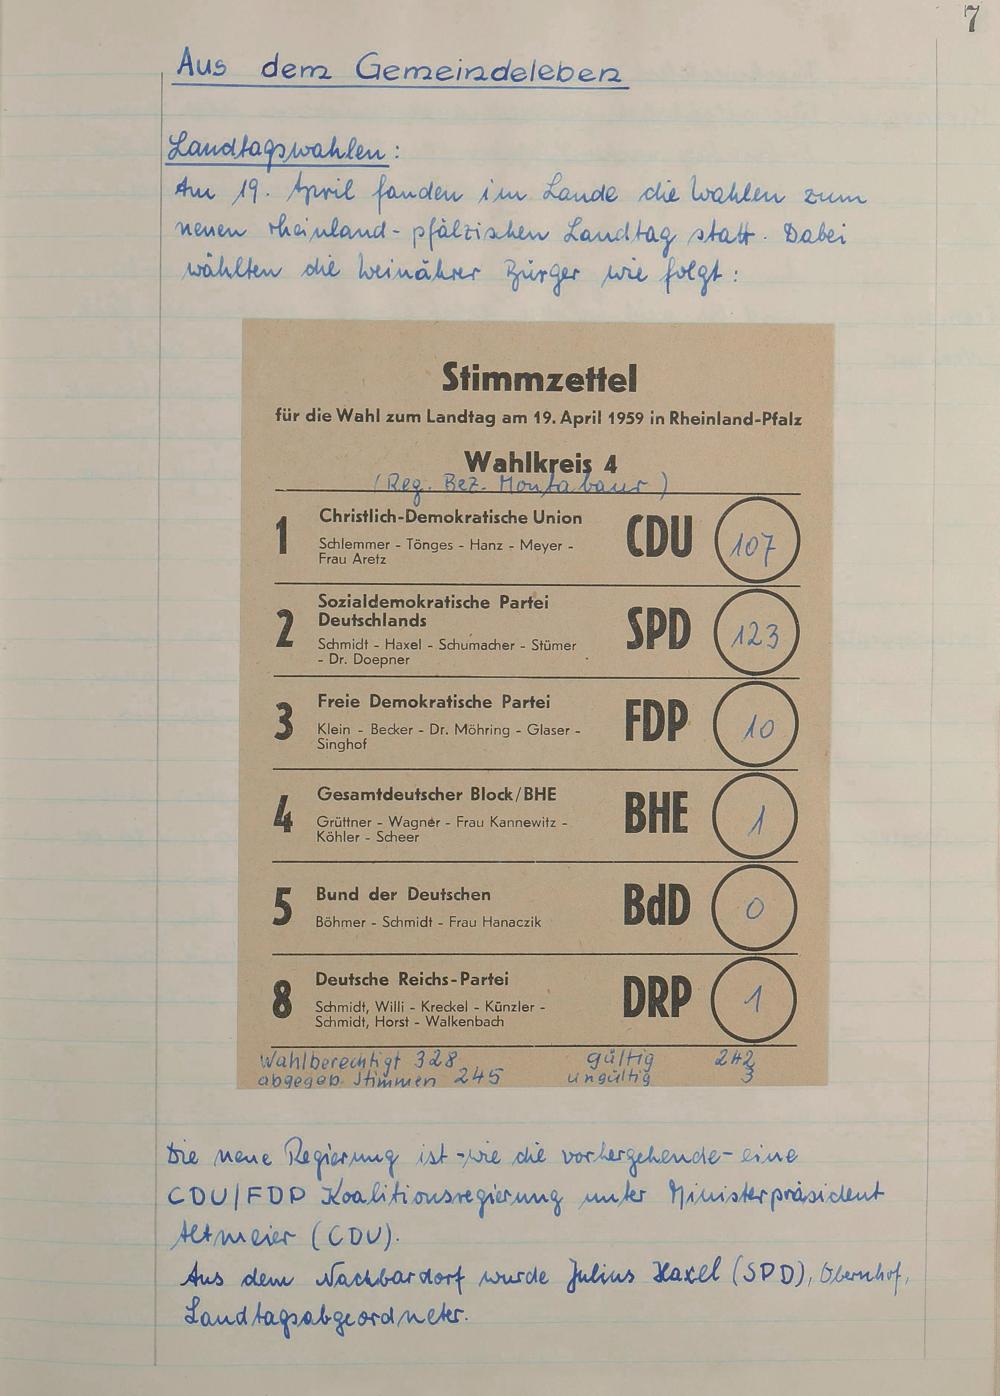 7
Aus dem Gemeindeleben
Landtagswahlen:
Am 19. April fanden im Lande die Wahlen zum
neuen rheinland-pfälzischen Landtag statt. Dabei
wählten die Weinährer Bürger wie folgt:
Stimmzettel
für die Wahl zum Landtag am 19. April 1959 in Rheinland-Pfalz
Wahlkreis 4
(Reg. Bez. Montabaur)
1 Christlich-Demokratische Union CDU 107
Schlemmer - Tönges - Hanz - Meyer -
Frau Aretz
2 Sozialdemokratische Partei
Deutschlands SPD 123
Schmidt - Haxel - Schumacher - Stümer
- Dr. Doepner
3 Freie Demokratische Partei FDP 10
Klein - Becker - Dr. Möhring - Glaser -
Singhof
4 Gesamtdeutscher Block/BHE BHE 1
Grüttner - Wagner - Frau Kannewitz -
Köhler - Scheer
5 Bund der Deutschen BdD 0
Böhmer - Schmidt - Frau Hanaczik
8 Deutsche Reichs-Partei DRP 1
Schmidt, Willi - Kreckel - Künzler -
Schmidt, Horst - Walkenbach
Wahlberechtigt 328 gültig 242
abgegeb. Stimmen 245 ungültig 3
Die neue Regierung ist - wie die vorhergehende - eine
CDU/FDP Koalitionsregierung unter Ministerpräsident
Altmeier (CDU).
Aus dem Nachbardorf wurde Julius Haxel (SPD), Obernhof,
Landtagsabgeordneter.